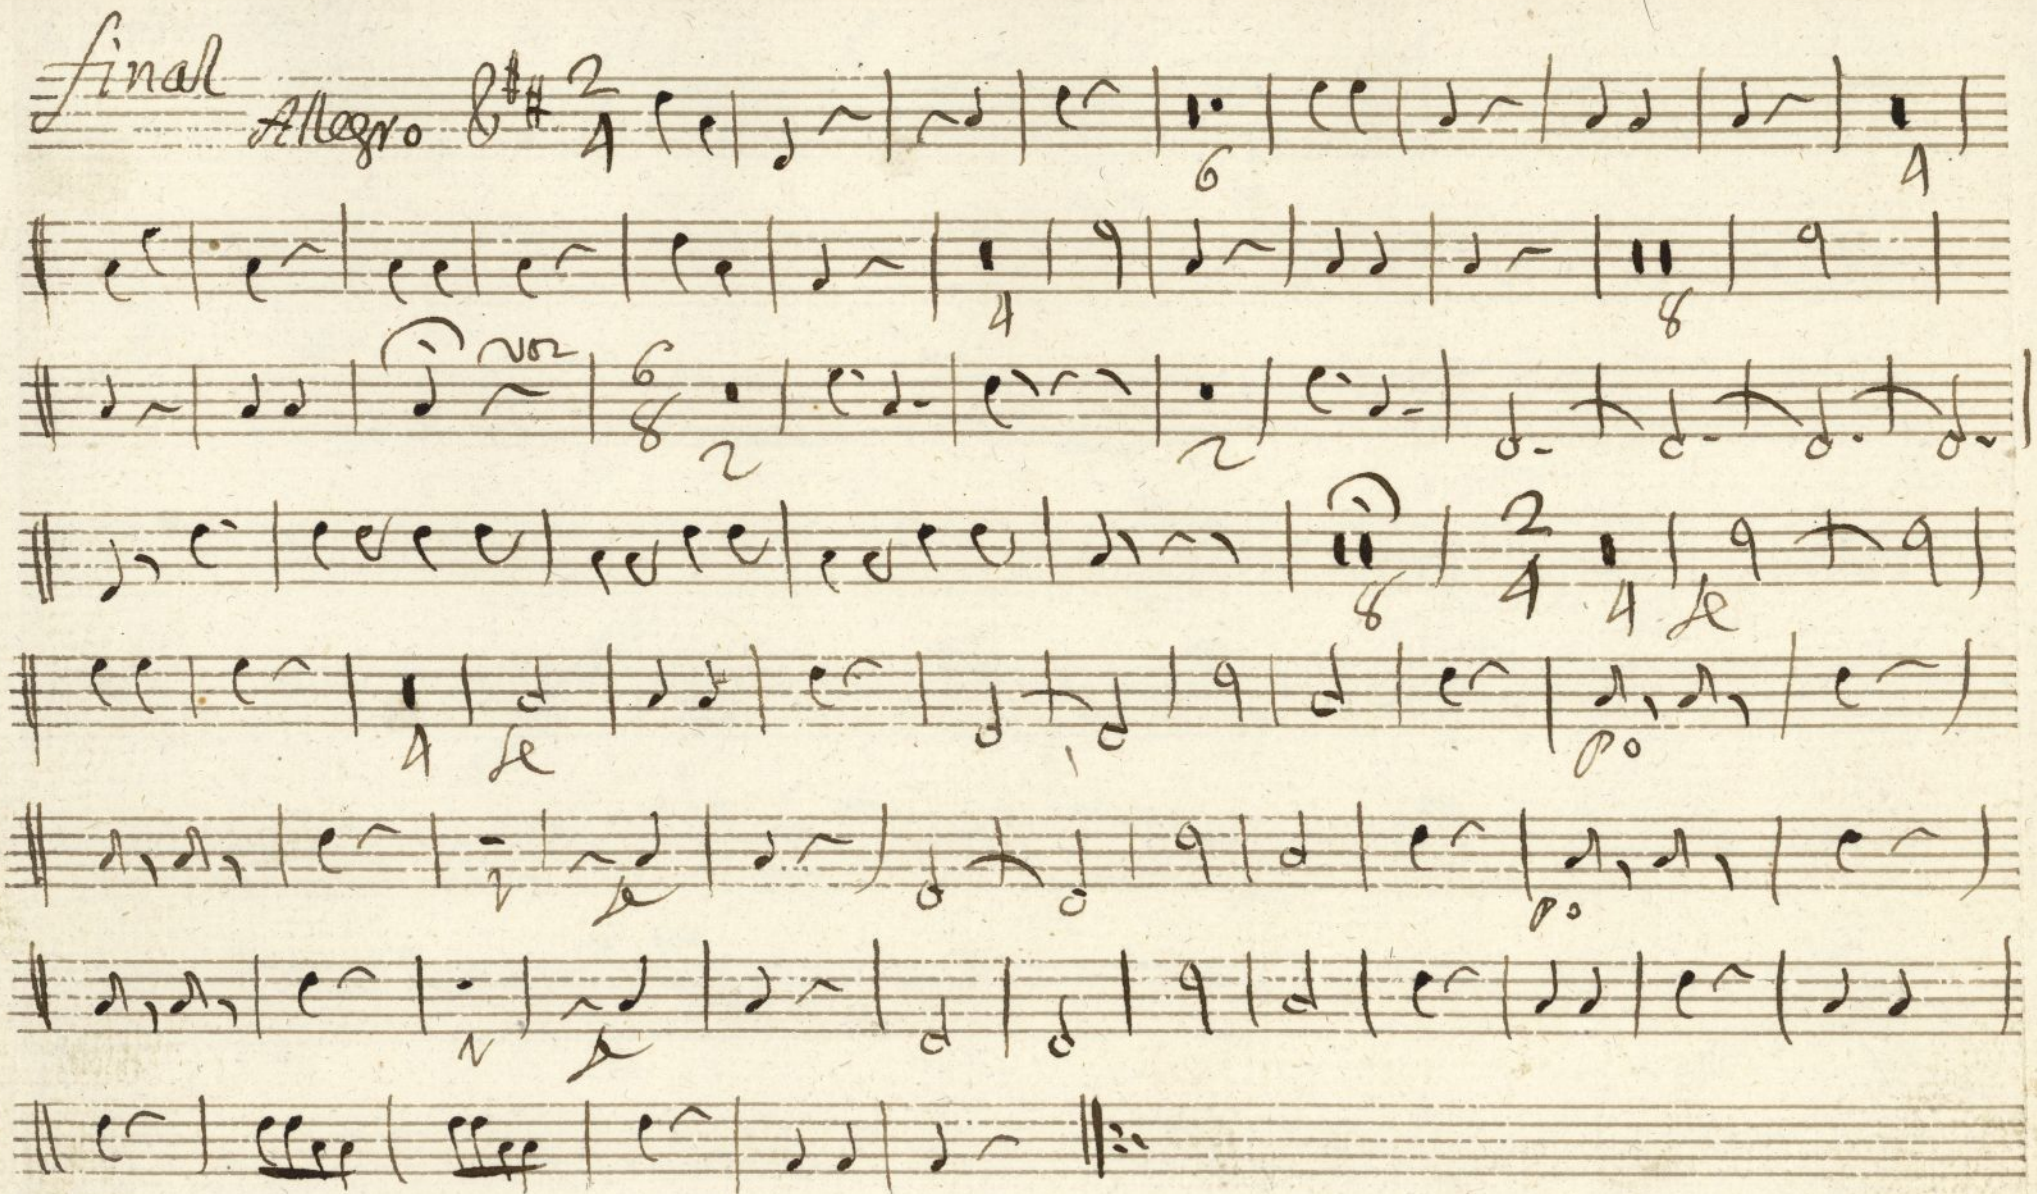 final
Allegro 2 4 6 4
4 8
voz
6 8 2 2
8 2 4 4 fe
4 fe po
2 fe po
2 fe